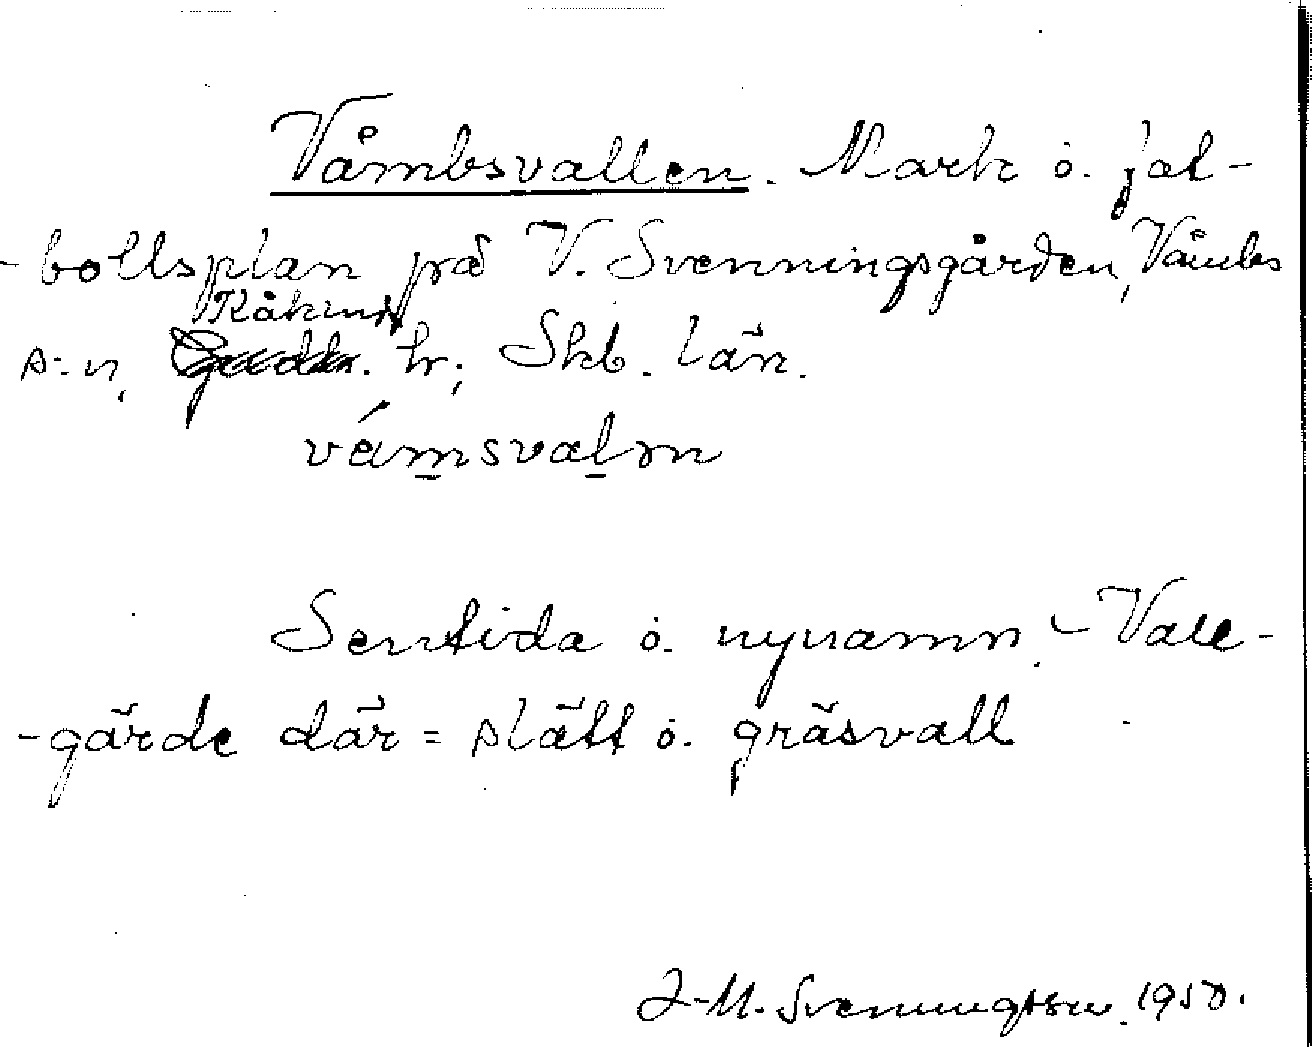 Våmbsvallen. Mark o. fot-
-bollsplan på V. Svenningsgården, Våmbs
Kåkinds
s-n, hr; Skb. län.
våmsvalm
Sentida o. nynamn. - Vall-
-gärde där = slätt o. gräsvall
J-M. Svenningsson. 1950.